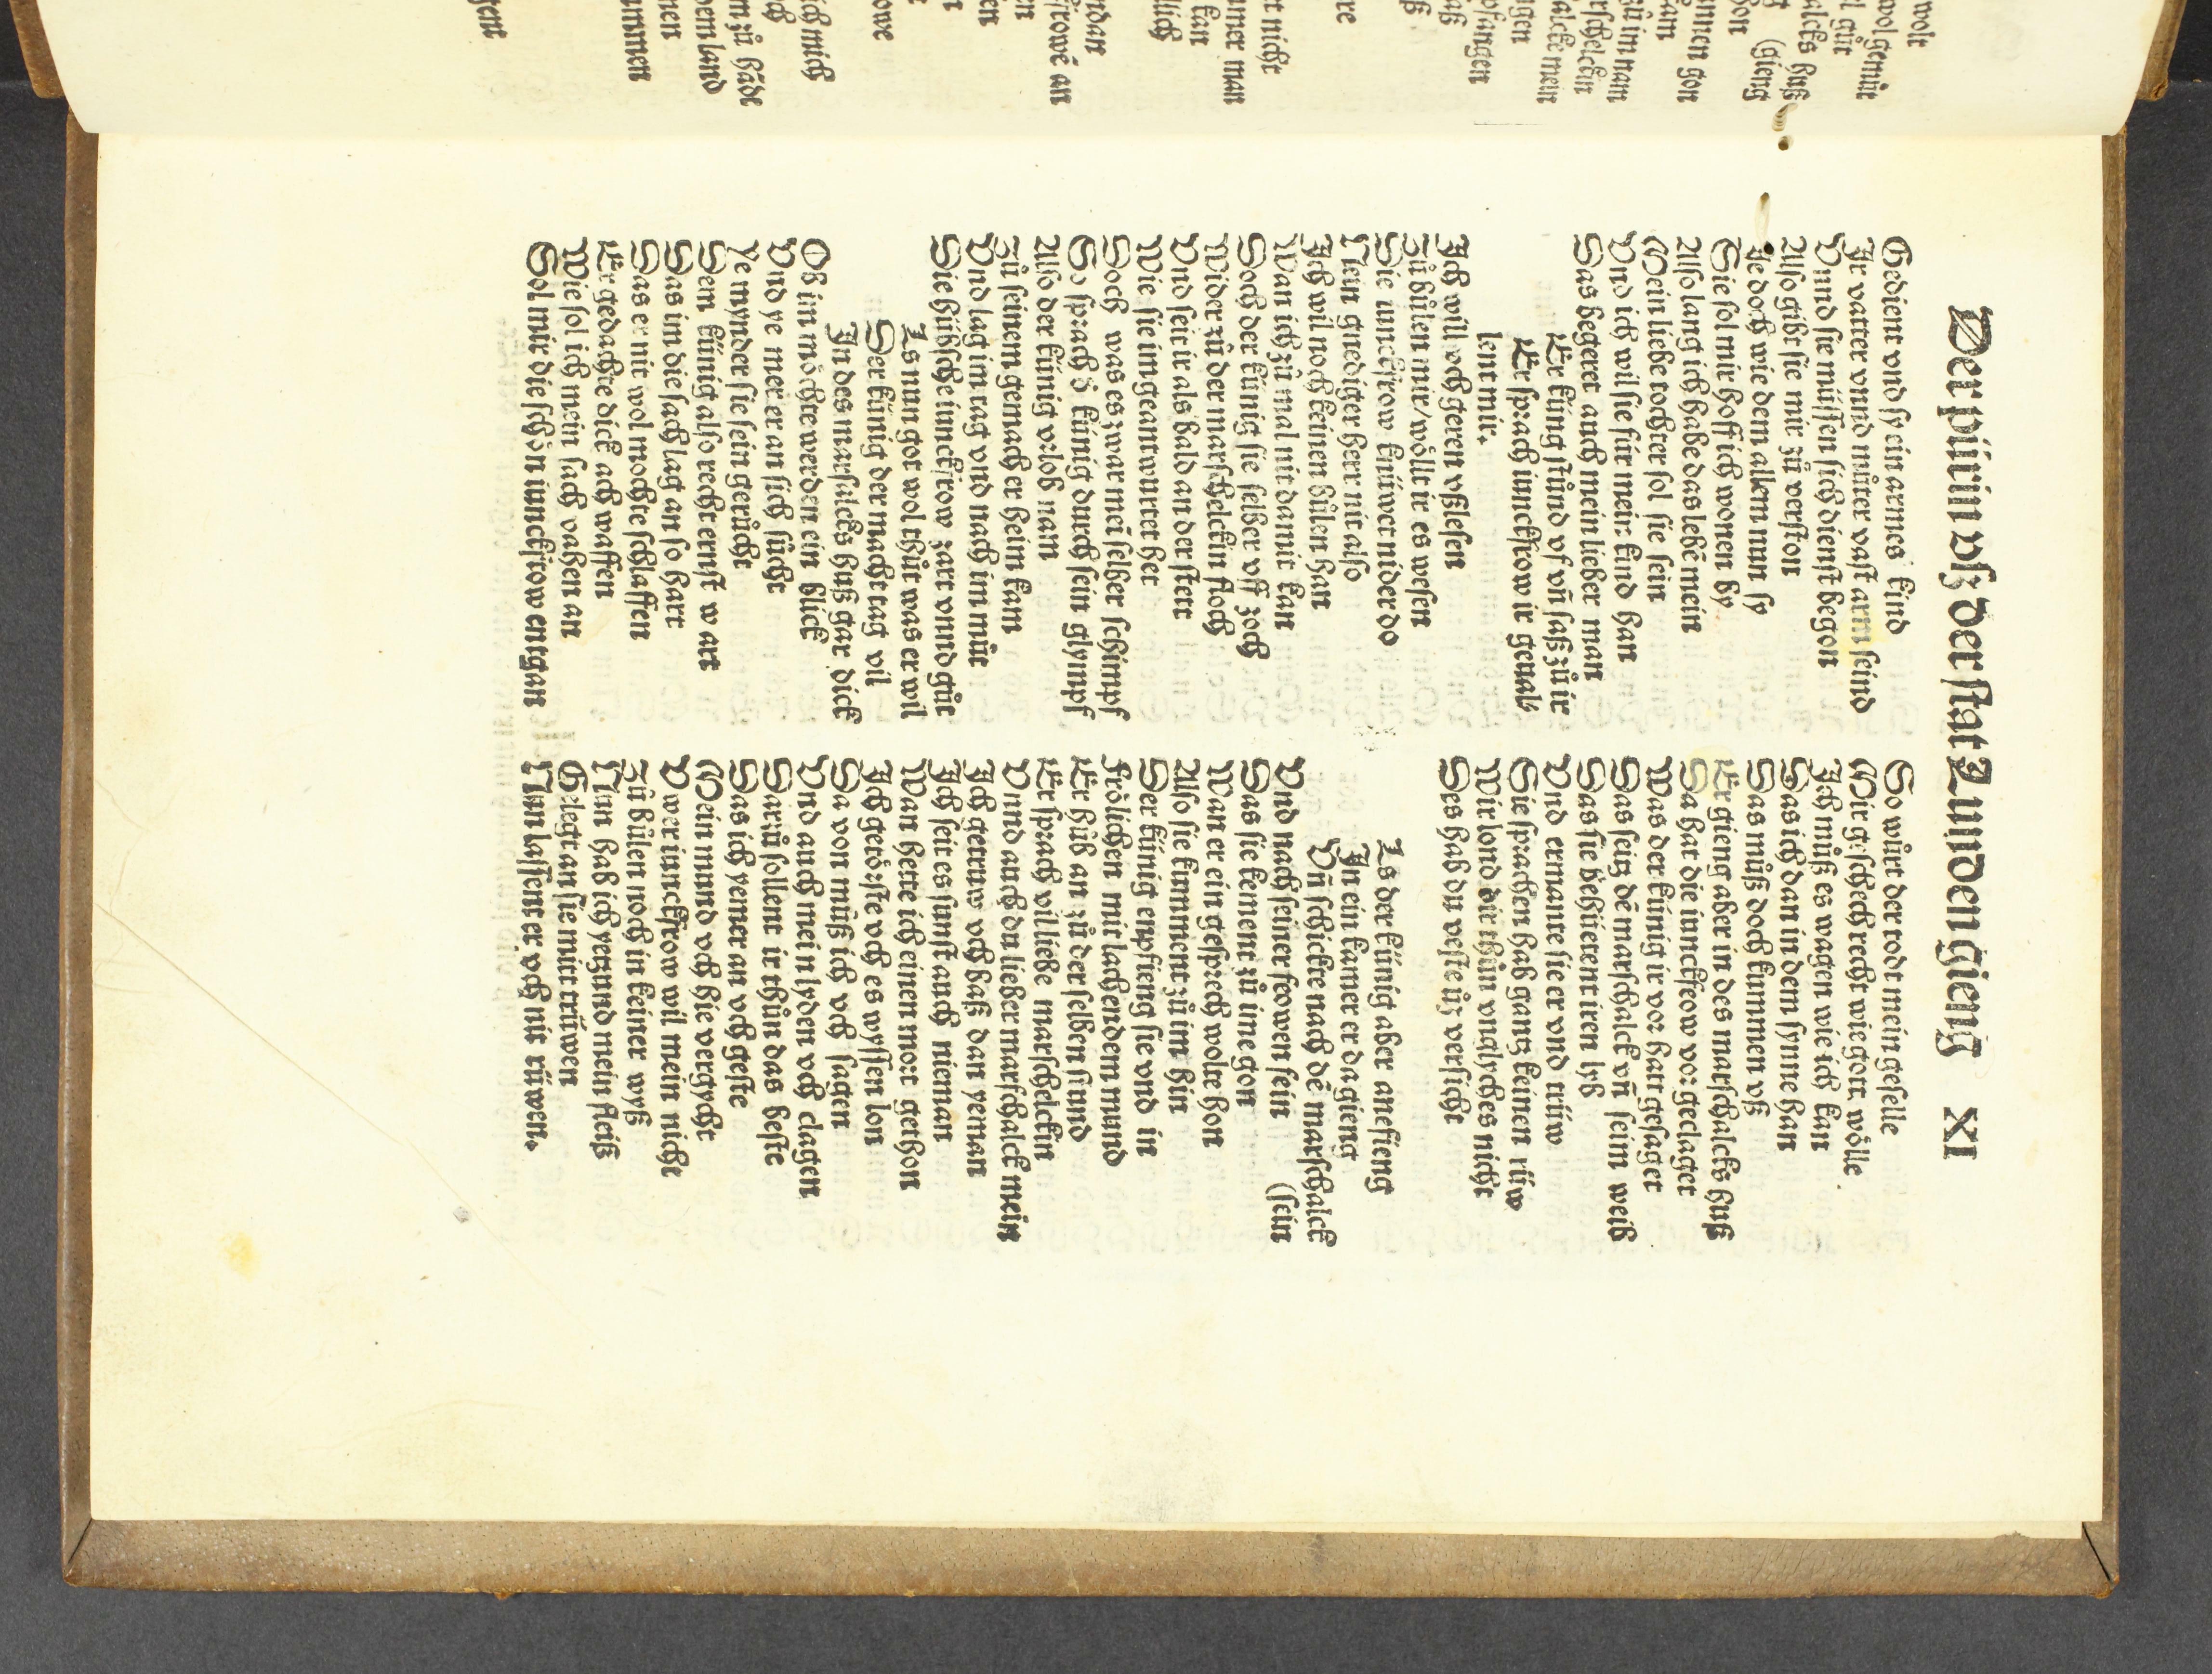 Der pürin vß der stat Lunden gieng XI
Gedient vnd sy ein armes kind
Ir vatter vnnd můter vast arm seind
Vnnd sie müssen sich dienst began
Also gibt sie mir zů verston
Jedoch wie dem allem nun sy
Sie sol mir hoff ich wonen by
Also lang ich habe das lebē mein
Mein liebe tochter sol sie sein
Vnd ich wil sie für mein kind han
Das begeret auch mein lieber man
Er küng stůnd vf vn̄ saß zů ir
Er sprach iunckfrow ir geual-
lent mir.
Ich will vch geren vßlesen
Zů bůlen mir/wöllt ir es wesen
Die iunckfrow knüwet nider do
Nein gnediger herr nit also
Ich wil noch keinen bůlen han
Wan ich zů mal nit da mit kan
Doch der künig sie selber vff zoch
Wider zů der marschelckin floch
Vnd seit ir als bald an der stett
Wie sie im geantwurtet het
Doch was es zwar mei selber schimpf
So sprach ð künig durch sein glympf
Also der künig vrlob nam
Zů seinem gemach er heim kam
Vnd lag im tag vnd nach im můt
Die hübsche iunckfrow zart vnnd gůt
Ls nun got wol thůt was er wil
Der künig der macht tag vil
In des marsalcks huß gar dick
Ob im möchte werden ein blick
Vnd ye mer er an sich sücht
Ye mynder sie sein gerůcht
Dem künig also recht ernst wart
Das in die sach lag an so hart
Das er nit wol mochte schlaffen
Er gedachte dick ach waffen
Wie sol ich mein sach vahen an
Sol mir die schön iunckfrow entgan
So würt der todt mein geselle
Mir geschech recht wie gott wölle
Ich můß es wagen wie ich kan
Das ich dan in dem synne han
Das můß doch kummen vß
Er gieng aber in des marschalcks huß
Da hat die iunckfrow vor geclaget
Was der künig ir vor hatt gesaget
Das seitz dē marschalck vn̄ seim weib
Das sie behüetent iren lyb
Vnd ermante sie er vnd trüw
Sie sprachen hab gantz keinen rüw
Wir lond dir thůn vnglyches nicht
Des hab du veste zůversicht
Ls der künig aber anefieng
In ein kamer er da gieng
Vn̄ schickte nach dē marschalck
Vnd nach seiner frowen sein (sein
Das sie kement zů ime gon
Wan er ein gesprech wolte hon
Also sie kumment zů im hin
Der künig enpfieng sie vnd in
Frölichen mit lachendem mund
Er hůb an zů der selben stund
Er sprach vil liebe marschelckin
Vnnd auch du lieber marschalck mein
Ich getruw vch baß dan yeman
Ich seit es sunst auch nieman
Wan hette ich einen mort gethon
Ich getörste vch es wyssen lon
Da von můß ich vch sagen
Vnd auch mein lyden vch clagen
Darzů sollent ir thůn das beste
Das ich yener an vch geste
Mein mund vch hie vergycht
Vwer iunckfrow wil mein nicht
Zů bůlen noch in keiner wyß
Nun hab ich yetzund mein fleiß
Gelegt an sie mitt trüwen
Nun lassent er vch nit rüwen.